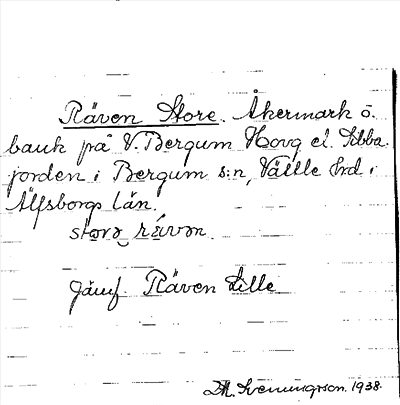 Räven Store. Åkermark ö.
bauk på V. Bergum Hovg el. Sibba-
jorden i Bergum s:n, Vättle hd. i
Älfsborgs län.
storə rävən.
Jämf. Räven Lille
Th. Svenungsson. 1938.